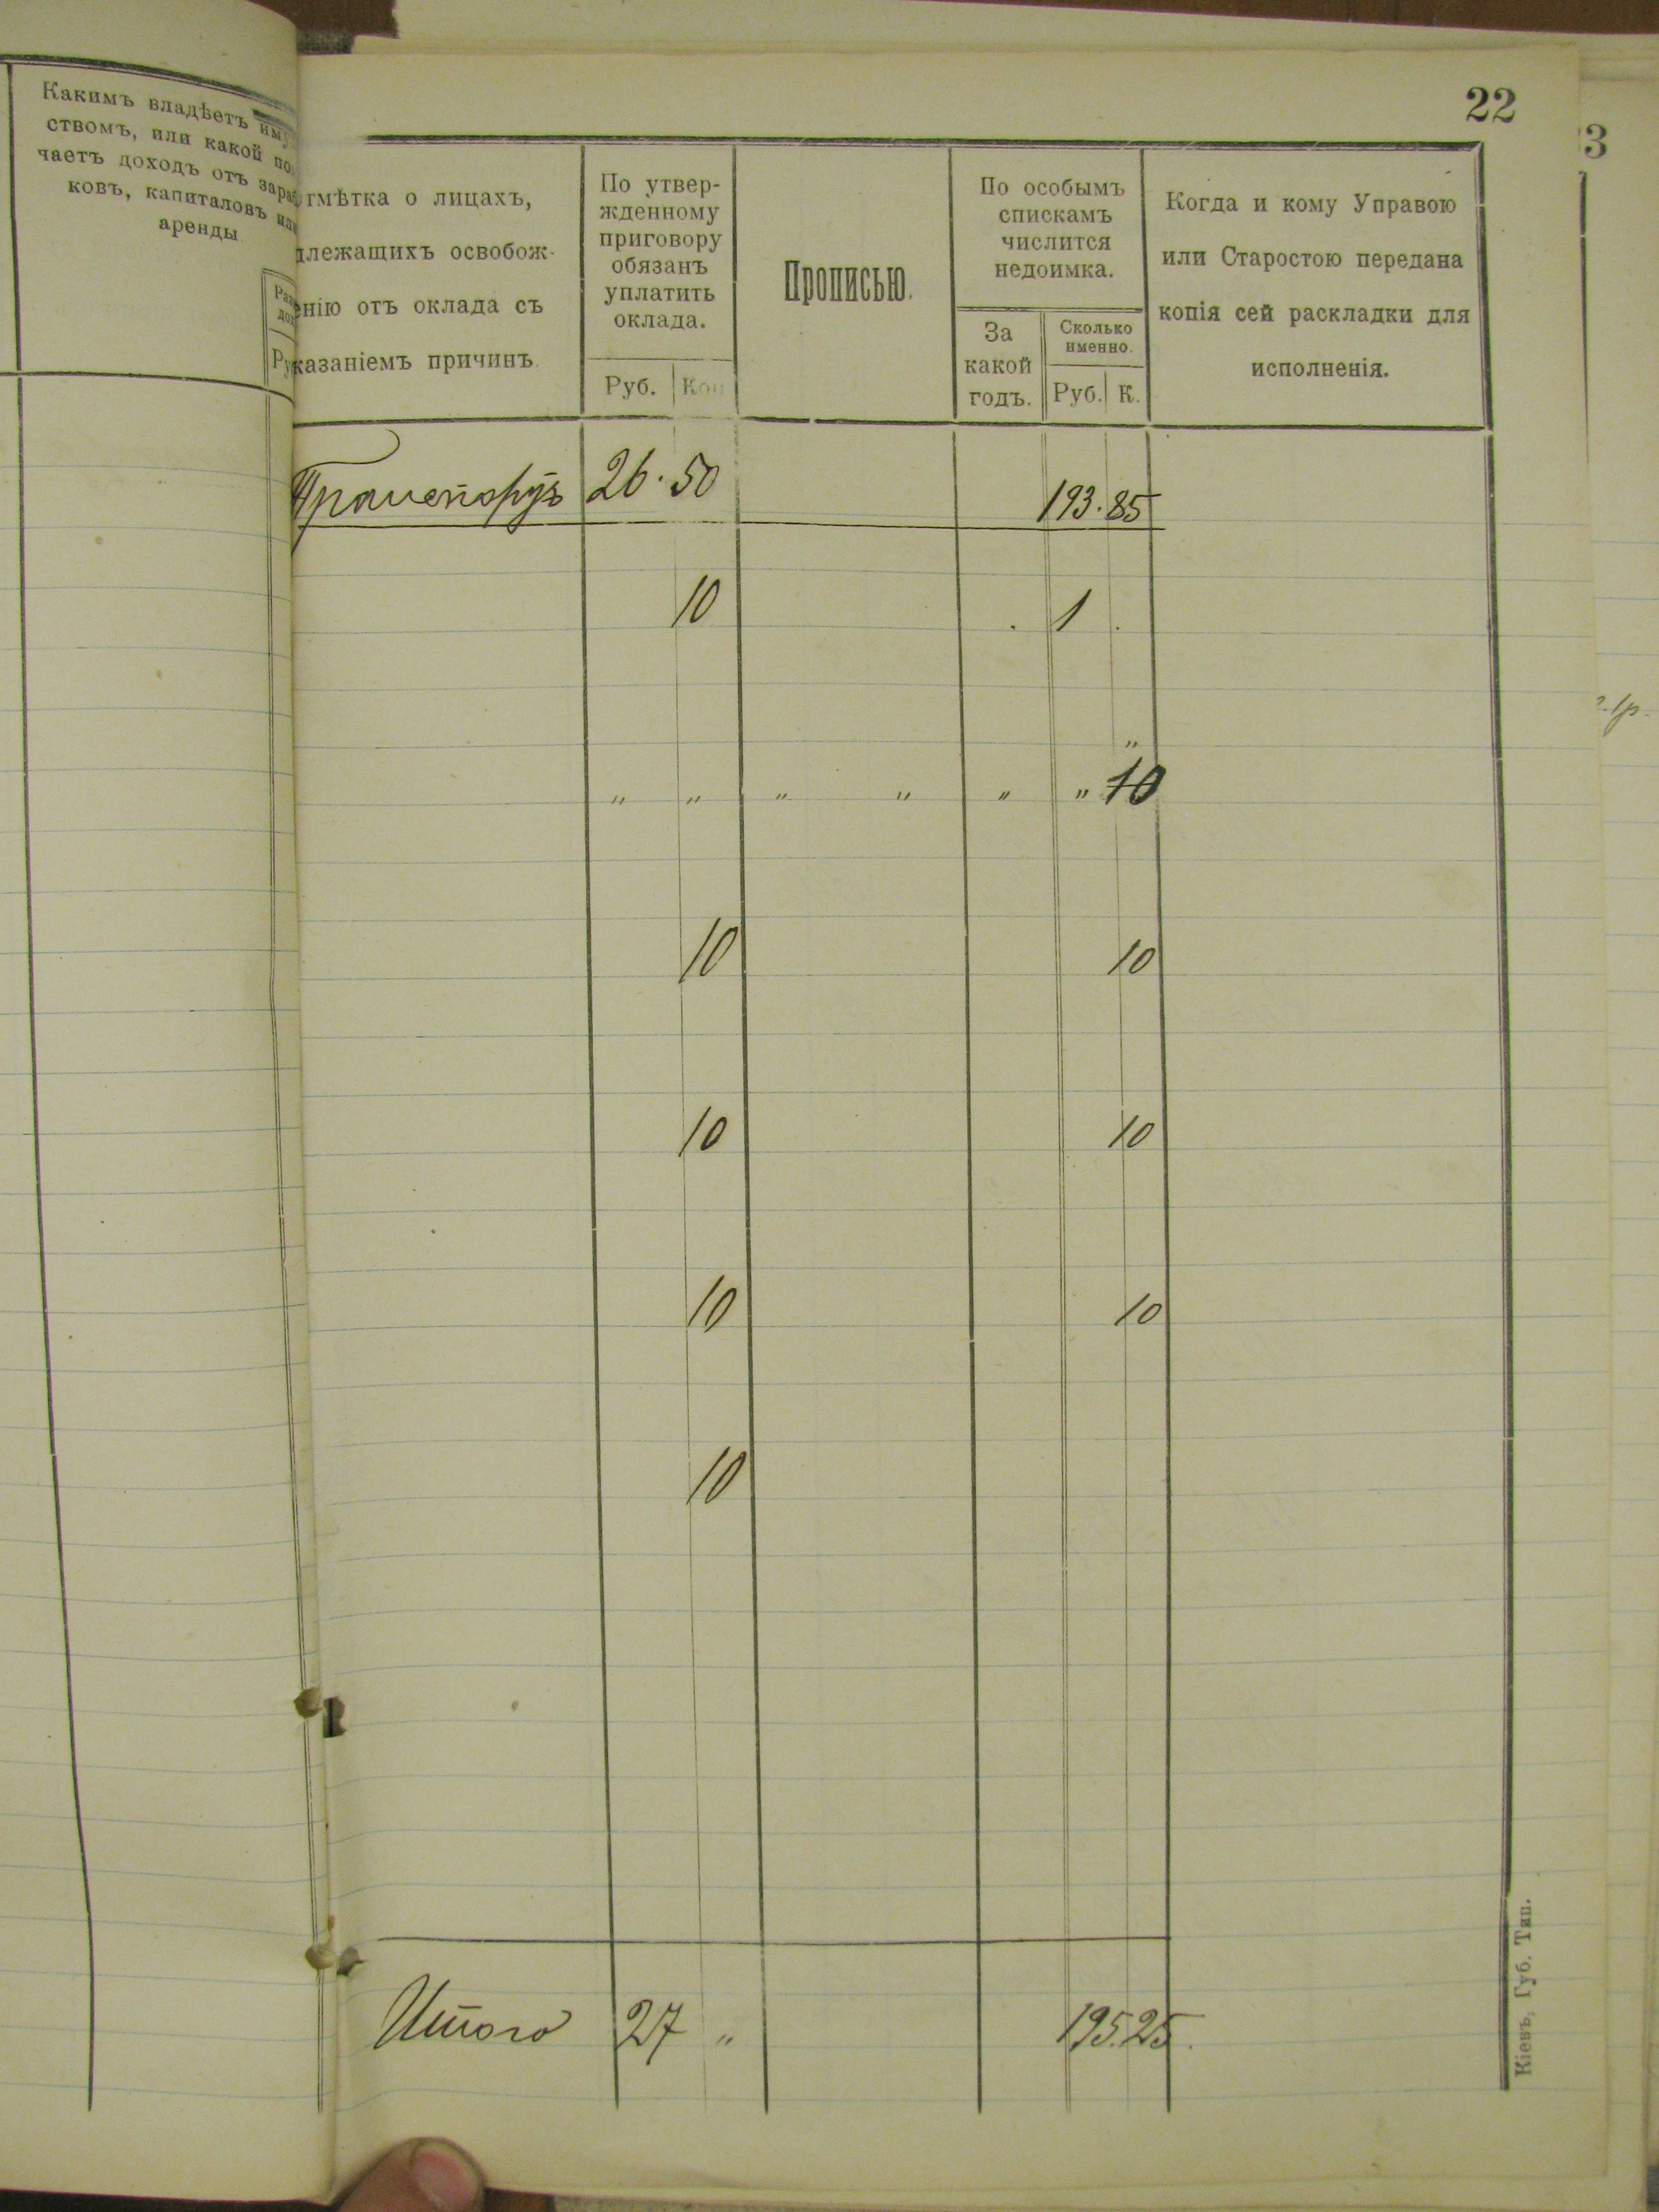 Какимъ владѣетъ иму
ствомъ, или какой по
чаетъ доходъ отъ зараб
ковъ, капиталовъ или
аренды
Ру
22
3
тмѣтка о лицахъ,
длежащихъ освобож-
енію отъ оклада съ
казаніемъ причинъ.
По утвер-
жденному
приговору
обязанъ
уплатить
оклада.
Руб. Коп
Прописью.
По особымъ
спискамъ
числится
недоимка.
За
какой
годъ.
Сколько
именно.
Руб. К.
Когда и кому Управою
или Старостою передана
копія сей раскладки для
исполненія.
Транспортъ 26. 50 193. 85
10 . 1 .
"
" " " " " " 10
10 10
10 10
10 10
10
Итого 27 " 195.25.
Кіевъ, Губ. Тип.